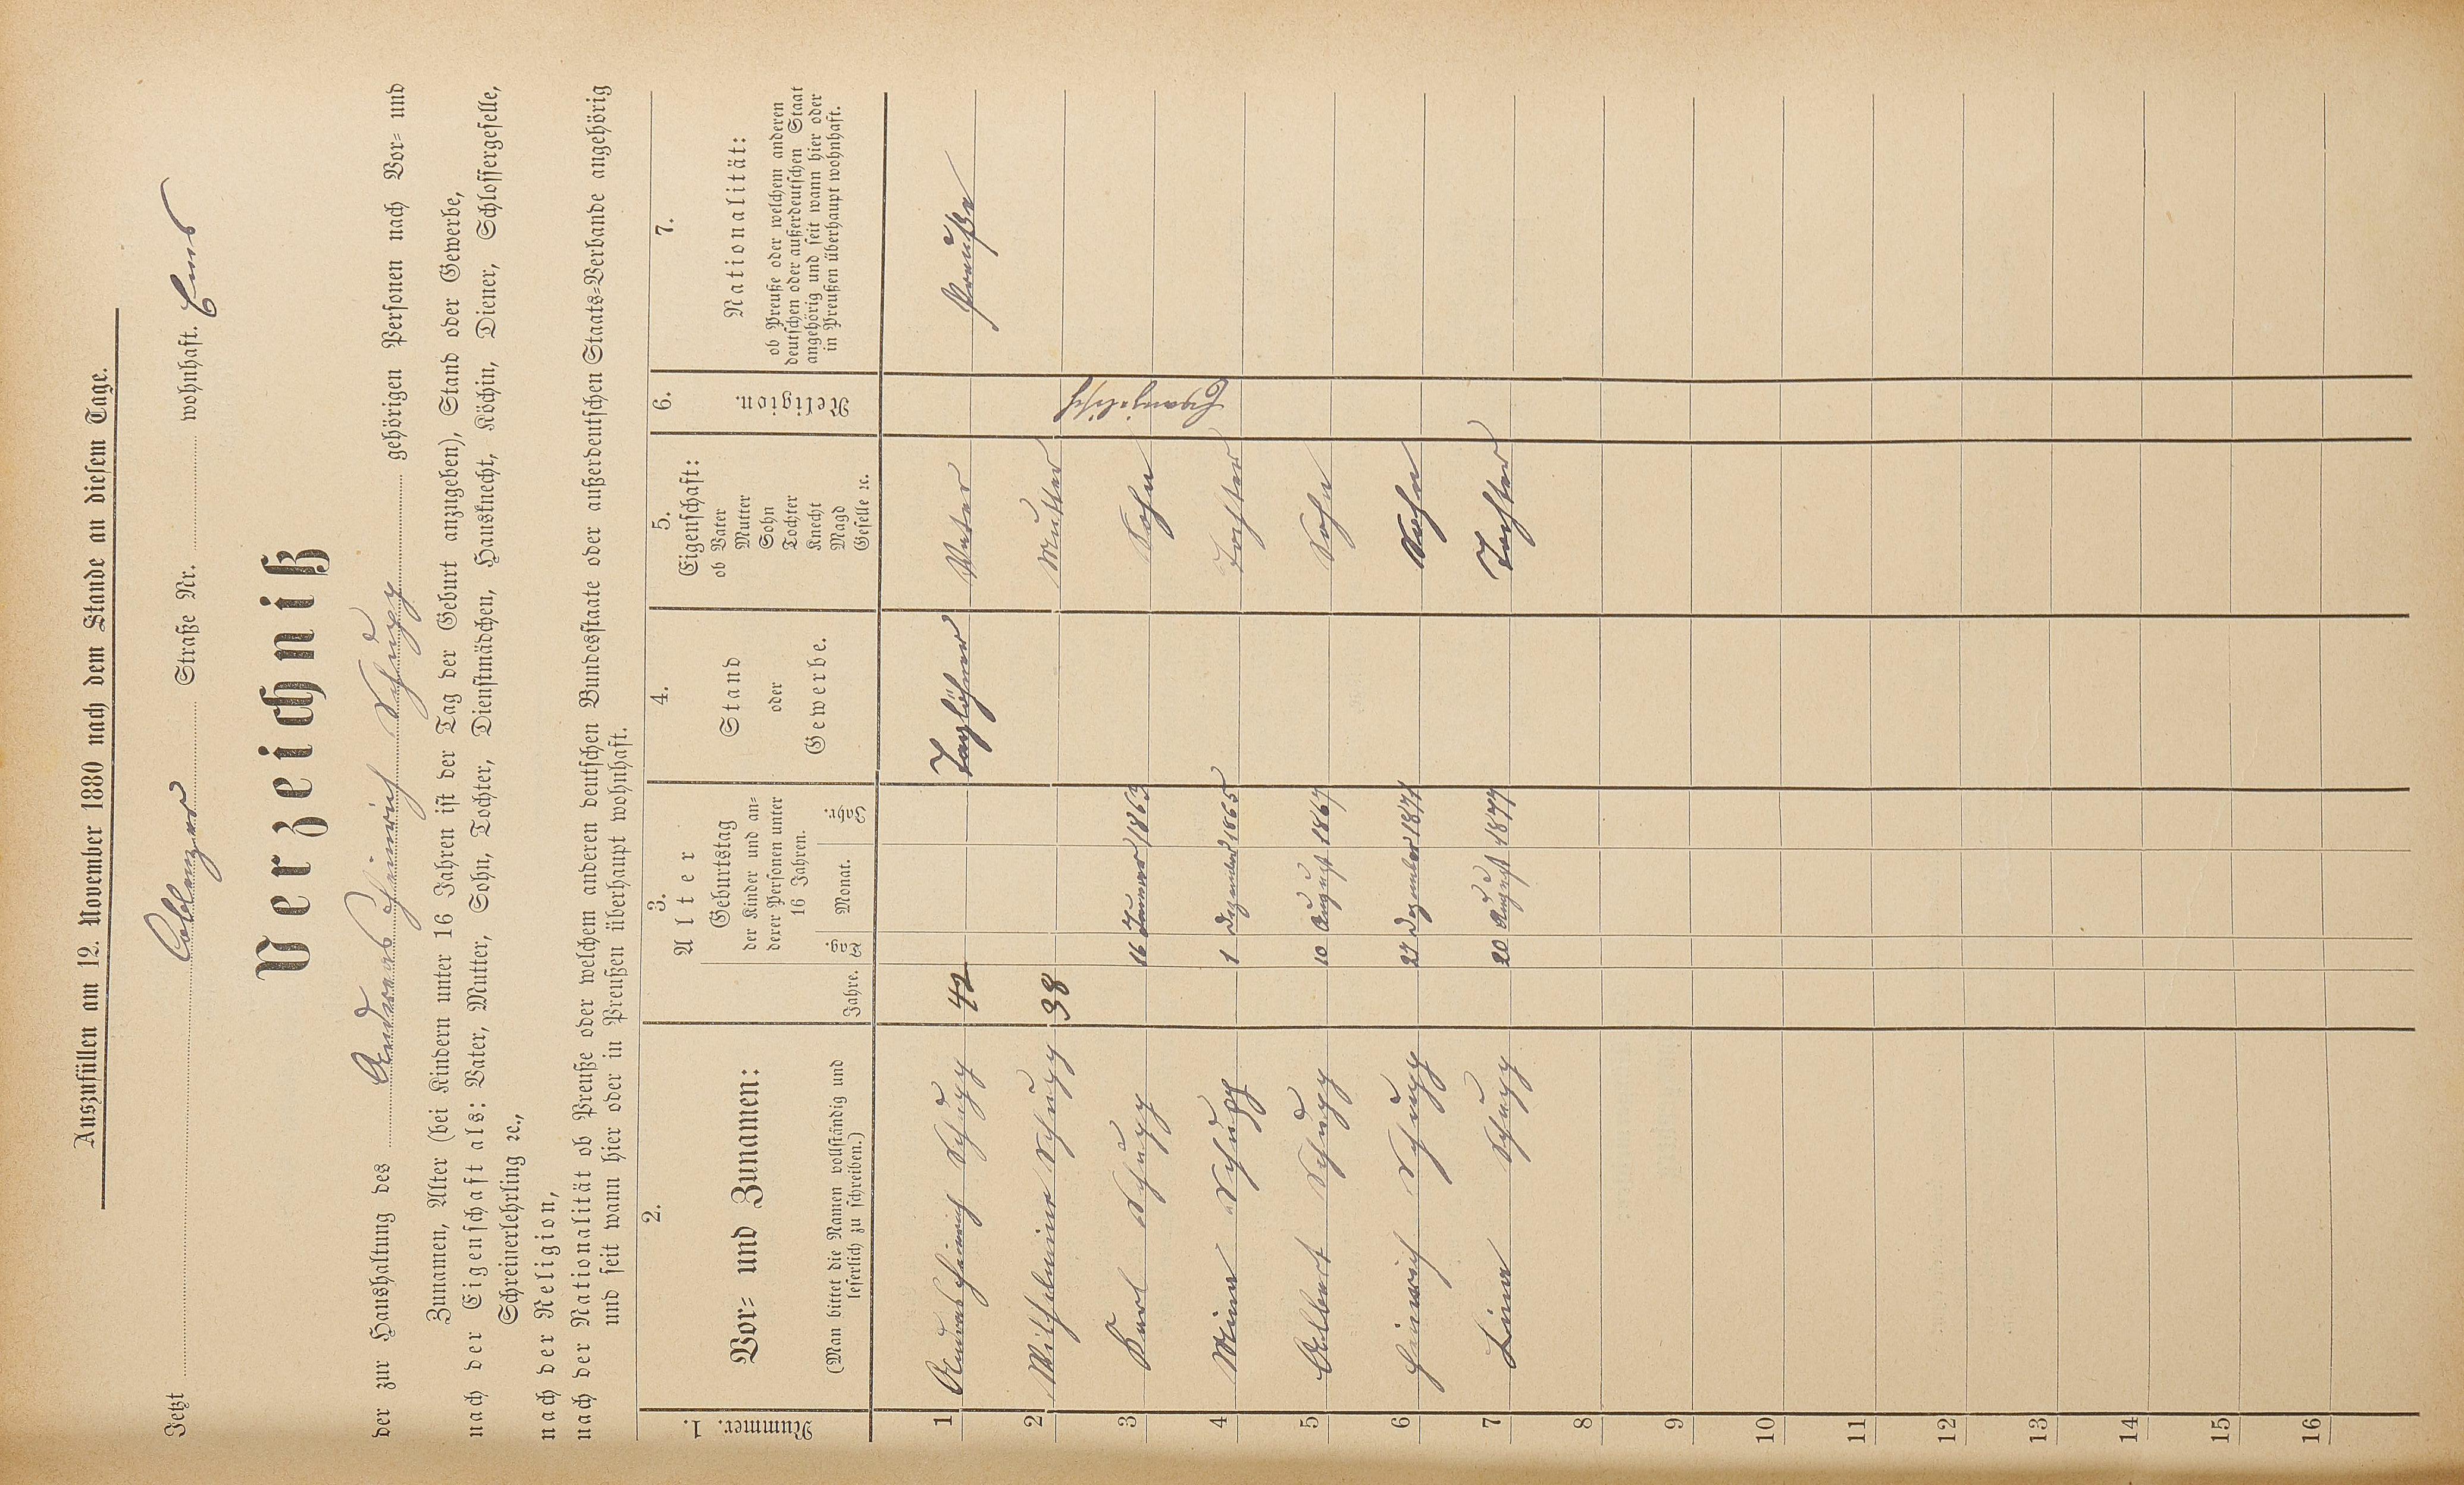 Auszufüllen am 12. November 1880 nach dem Stande an diesem Tage.
Jetzt Coblenzer Straße Nr. wohnhaft. Ems
Verzeichniß
der zur Haushaltung des Andreas Heinrich Schupp gehörigen Personen nach Vor- und
Zunamen, Alter (bei Kindern unter 16 Jahren ist der Tag der Geburt anzugeben), Stand oder Gewerbe,
nach der Eigenschaft als: Vater, Mutter, Sohn, Tochter, Dienstmädchen, Hausknecht, Köchin, Diener, Schlossergeselle,
Schreinerlehrling ꝛc.,
nach der Religion,
nach der Nationalität ob Preuße oder welchem anderen deutschen Bundesstaate oder außerdeutschen Staats-Verbande angehörig
und seit wann hier oder in Preußen überhaupt wohnhaft.
1.
Nummer.
2.
Vor- und Zunamen:
(Man bittet die Namen vollständig und
leserlich zu schreiben.)
3.
Alter
Jahre.
Geburtstag
der Kinder und an-
derer Personen unter
16 Jahren.
Tag.
Monat.
Jahr.
4.
Stand
oder
Gewerbe.
5.
Eigenschaft:
ob Vater
Mutter
Sohn
Tochter
Knecht
Magd
Geselle ꝛc.
6.
Religion.
7.
Nationalität:
ob Preuße oder welchem anderen
deutschen oder außerdeutschen Staat
angehörig und seit wann hier oder
in Preußen überhaupt wohnhaft.
1 Andreas Heinrich Schupp 42 Taglöhner Vater Preuße
2 Wilhelmine Schupp 38 Mutter
Evangelisch
3 Karl Schupp 16 Januar 1863 Sohn
4 Mina Schupp 1 Dezember 1865 Tochter
5 Albert Schupp 10 August 1867 Sohn
6 Heinrich Schupp 27 Dezember 1871 Sohn
7 Lina Schupp 20 August 1877 Tochter
8
9
10
11
12
13
14
15
16